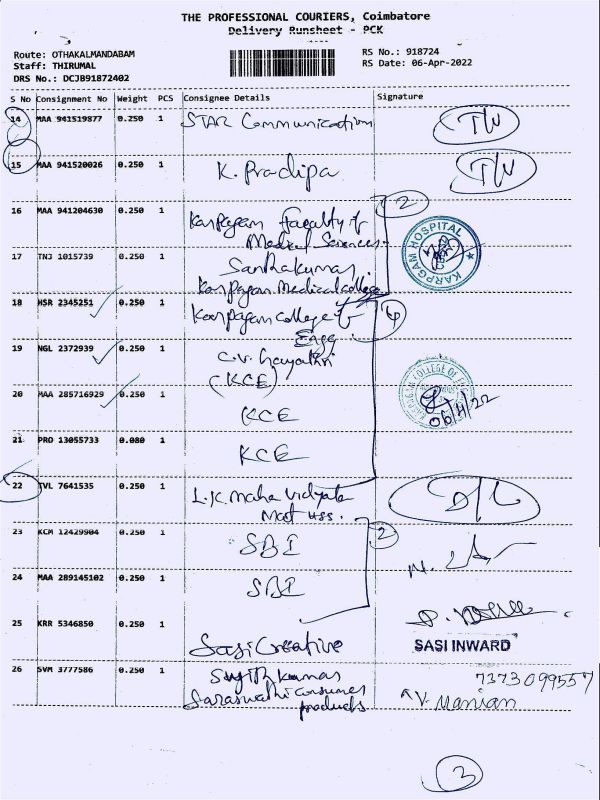 THE PROFESSIONAL COURIERS, Coimbatore
Delivery Runsheet - PCK
Route: OTHAKALMANDABAM
Staff: THIRUMAL
DRS No.: DCJB91872402
RS No.: 918724
RS Date: 06-Apr-2022
S No Consignment No Weight PCS Consignee Details Signature
14 MAA 941519877 0.250 1 STAR Communication T/W
15 MAA 941520026 0.250 1 K. Pradipa T/W
2
16 MAA 941204630 0.250 1 Karpagam Faculty of
Medical Sciences
KARPGAM HOSPITAL
17 TNJ 1015739 0.250 1 Santhakumar.
Karpagam Medical college
18 HSR 2345251 0.250 1 Karpagam college of
Engg
19 NGL 2372939 0.250 1 C.V. Gayathri
(KCE)
20 MAA 285716929 0.250 1 KCE
06/4/22
21 PRO 13055733 0.080 1 KCE
22 TVL 7641535 0.250 1 L.K. Maha Vidyala
Mat HSS. D/L
23 KCM 12429904 0.250 1 SBI
2
24 MAA 289145102 0.250 1 SBI
25 KRR 5346850 0.250 1 Sasi Creative
SASI INWARD
26 SVM 3777586 0.250 1 Sujith kumar
Saraswathi consumer
products
7373099557
V. Manian
3